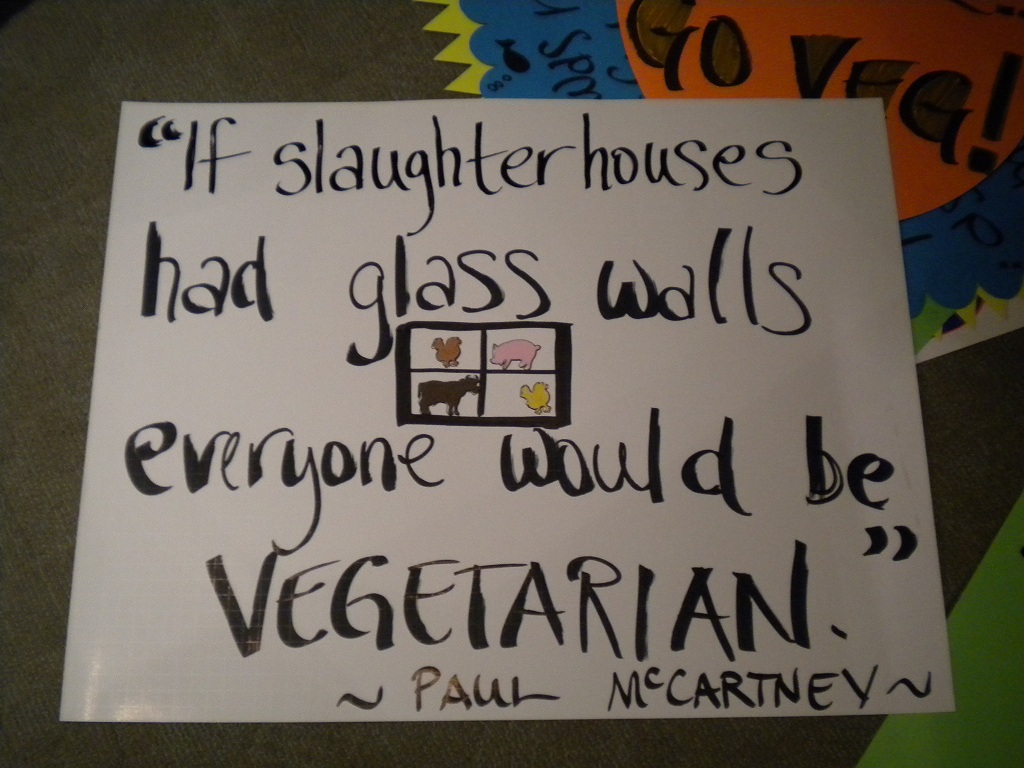 GO VEG!
"If slaughterhouses
had glass walls
everyone would be
VEGETARIAN."
~ PAUL McCARTNEY ~